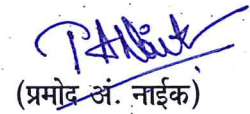 (प्रमोद अं. नाईक)